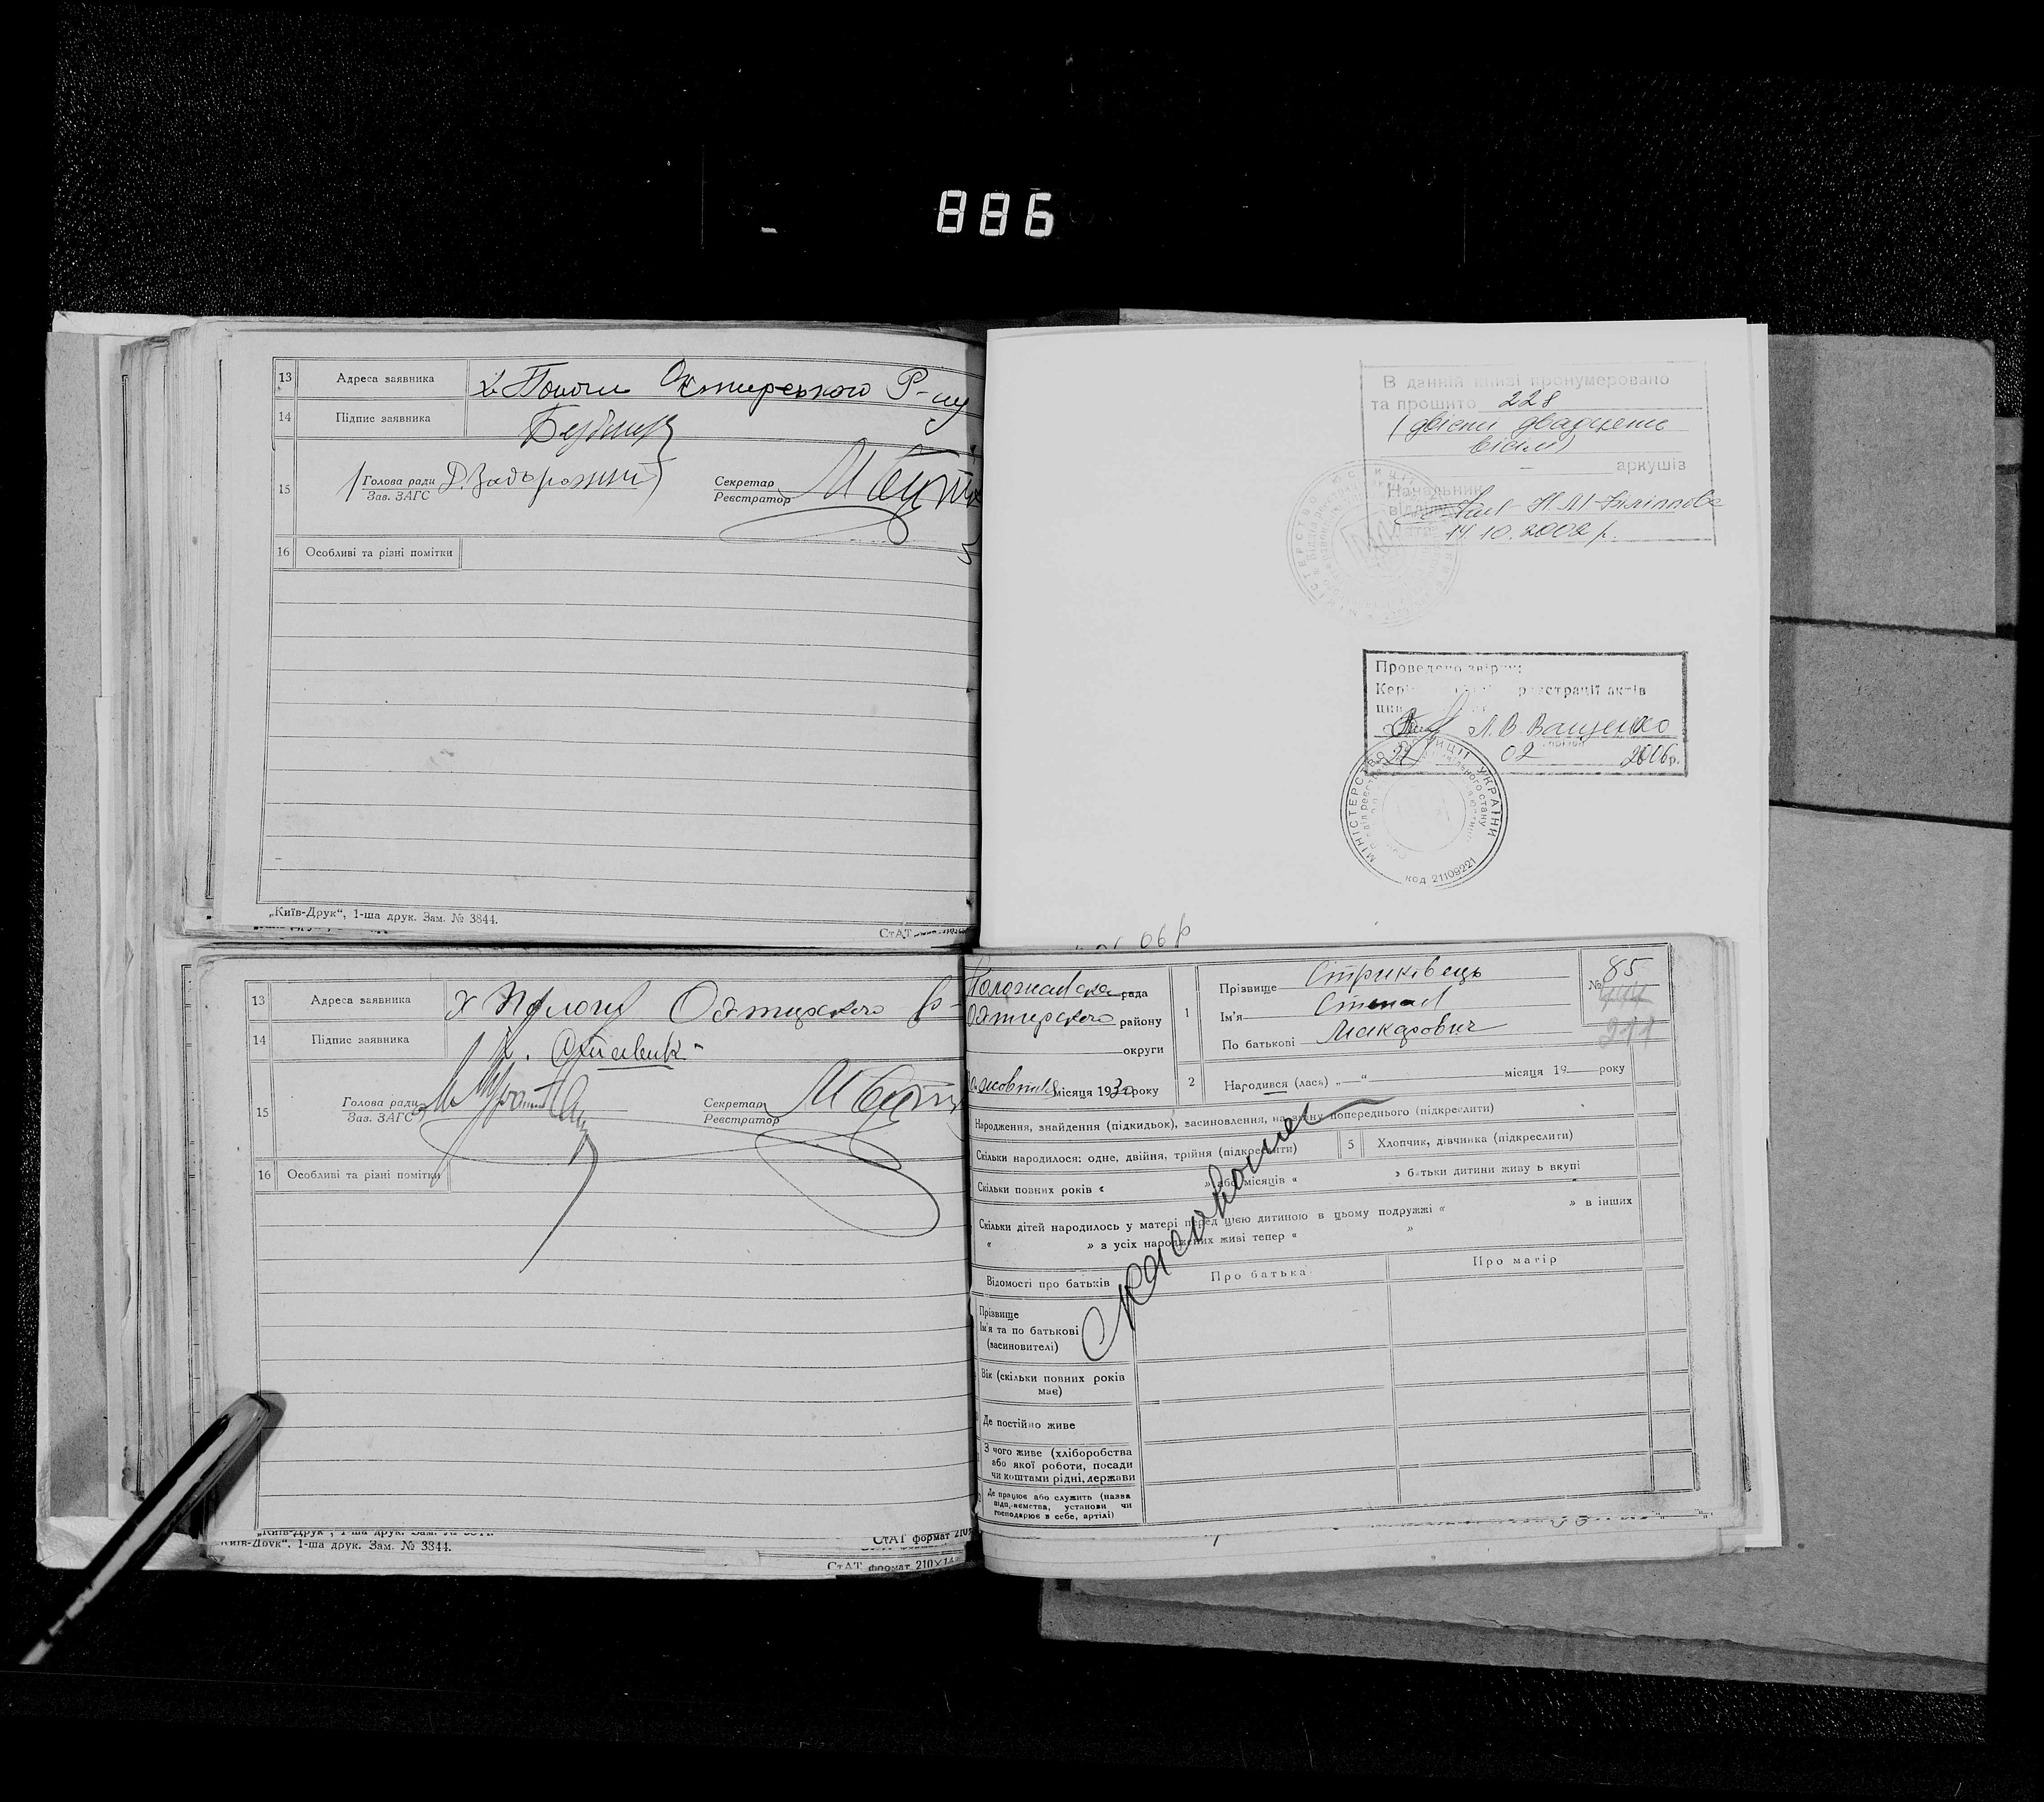 886
13 Адреса заявника х. Пологи Охтирського Р-ну
14 Підпис заявника
15 Голова ради Д. Задорожний Секретар
Зав. ЗАГС Реєстратор
16 Особливі та різні помітки
„Київ-Друк“, 1-ша друк. Зам. № 3844.
СтАТ
В данній книзі пронумеровано
та прошито 228
(двісті двадцять
вісім)
аркушів
Начальник
відділу Н.М. Філіппова
14.10.2002 р.
Проведено звірку:
реєстрації актів
Л.В. Ващенко
02 2006р.
МІНІСТЕРСТВО ЮСТИЦІЇ УКРАЇНИ
код 21109221
06 р
13 Адреса заявника х Пологи Охтирського р-
14 Підпис заявника
15 Голова ради Секретар
Зав. ЗАГС Реєстратор
16 Особливі та різні помітки
„Київ-Друк“, 1-ша друк. Зам. № 3844.
СтАТ формат 210
„Київ-Друк“. 1-ша друк. Зам. № 3844.
СтАТ формат 210×14
рада
Охтирского району
округи
жовтня місяця 1930 року
1 Прізвище Стриківець
Ім’я Степан
По батькові Макарович
№ 85
211
2 Народився (лася) „—“ місяця 19 року
Народження, знайдення (підкидьок), засиновлення, на зміну попереднього (підкреслити)
Скільки народилося: одне, двійня, трійня (підкреслити) 5 Хлопчик, дівчинка (підкреслити)
Скільки повних років « » або місяців « » батьки дитини живу ь вкупі
Скільки дітей народилось у матері перед цією дитиною в цьому подружжі « » в інших
« » з усіх народжених живі тепер « »
Відомості про батьків Про батька Про матір
Прізвище
Ім’я та по батькові
(засиновителі)
Вік (скільки повних років
має)
Де постійно живе
З чого живе (хліборобства
або якої роботи, посади
чи коштами рідні, держави
Де працює або служить (назва
підприємства, установи чи
господарює в себе, артілі)